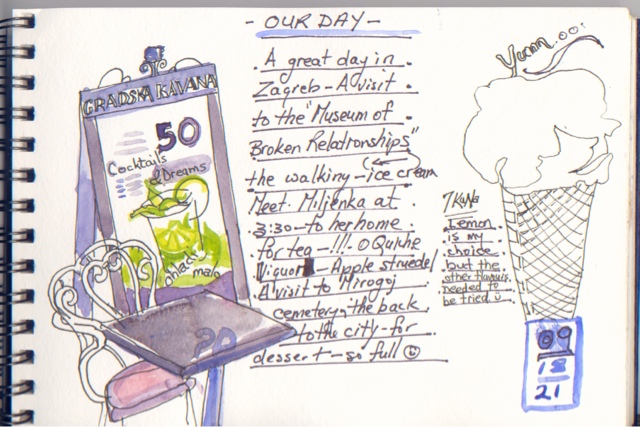 - OUR DAY -
. A great day in .
Zagreb - A visit .
to the "Museum of .
Broken Relationships"
the walking - ice cream
Meet Miljenka at .
3:30 - to her home
for tea - !!!
- Apple struedel
A visit to Mirogoj
cemetery, the back
to the city - for
dessert - so full
GRADSKA KAVANA
50
Cocktails
& Dreams
malo
Yumm...
7 Kuna
Lemon
is my
choice
but the
other
needed to
be tried
09
18
21